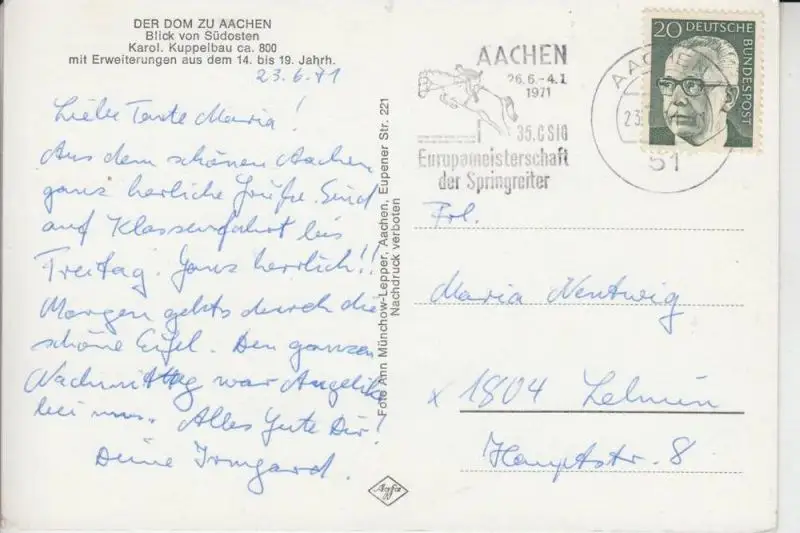 DER DOM ZU AACHEN
Blick von Südosten
Karol. Kuppelbau ca. 800
mit Erweiterungen aus dem 14. bis 19. Jahrh.
23.6.71
Liebe Tante Maria!
Aus dem schönen Aachen
ganz herzliche Grüße. Sind
auf Klassenfahrt bis
Freitag. Ganz herrlich!!
Morgen gehts durch die
schöne Eifel. Den ganzen
Nachmittag war Angelika
bei uns. Alles Gute Dir!
Deine Irmgard.
Foto Ann Münchow-Lepper, Aachen, Eupener Str. 221
Nachdruck verboten
Agfa
AACHEN
26.6.-4.7.
1971
35.CSIO
Europameisterschaft
der Springreiter
AACHEN
23.
51
20 DEUTSCHE
BUNDESPOST
Frl.
Maria Nentwig
x 1804 Lehnin
Hauptstr. 8